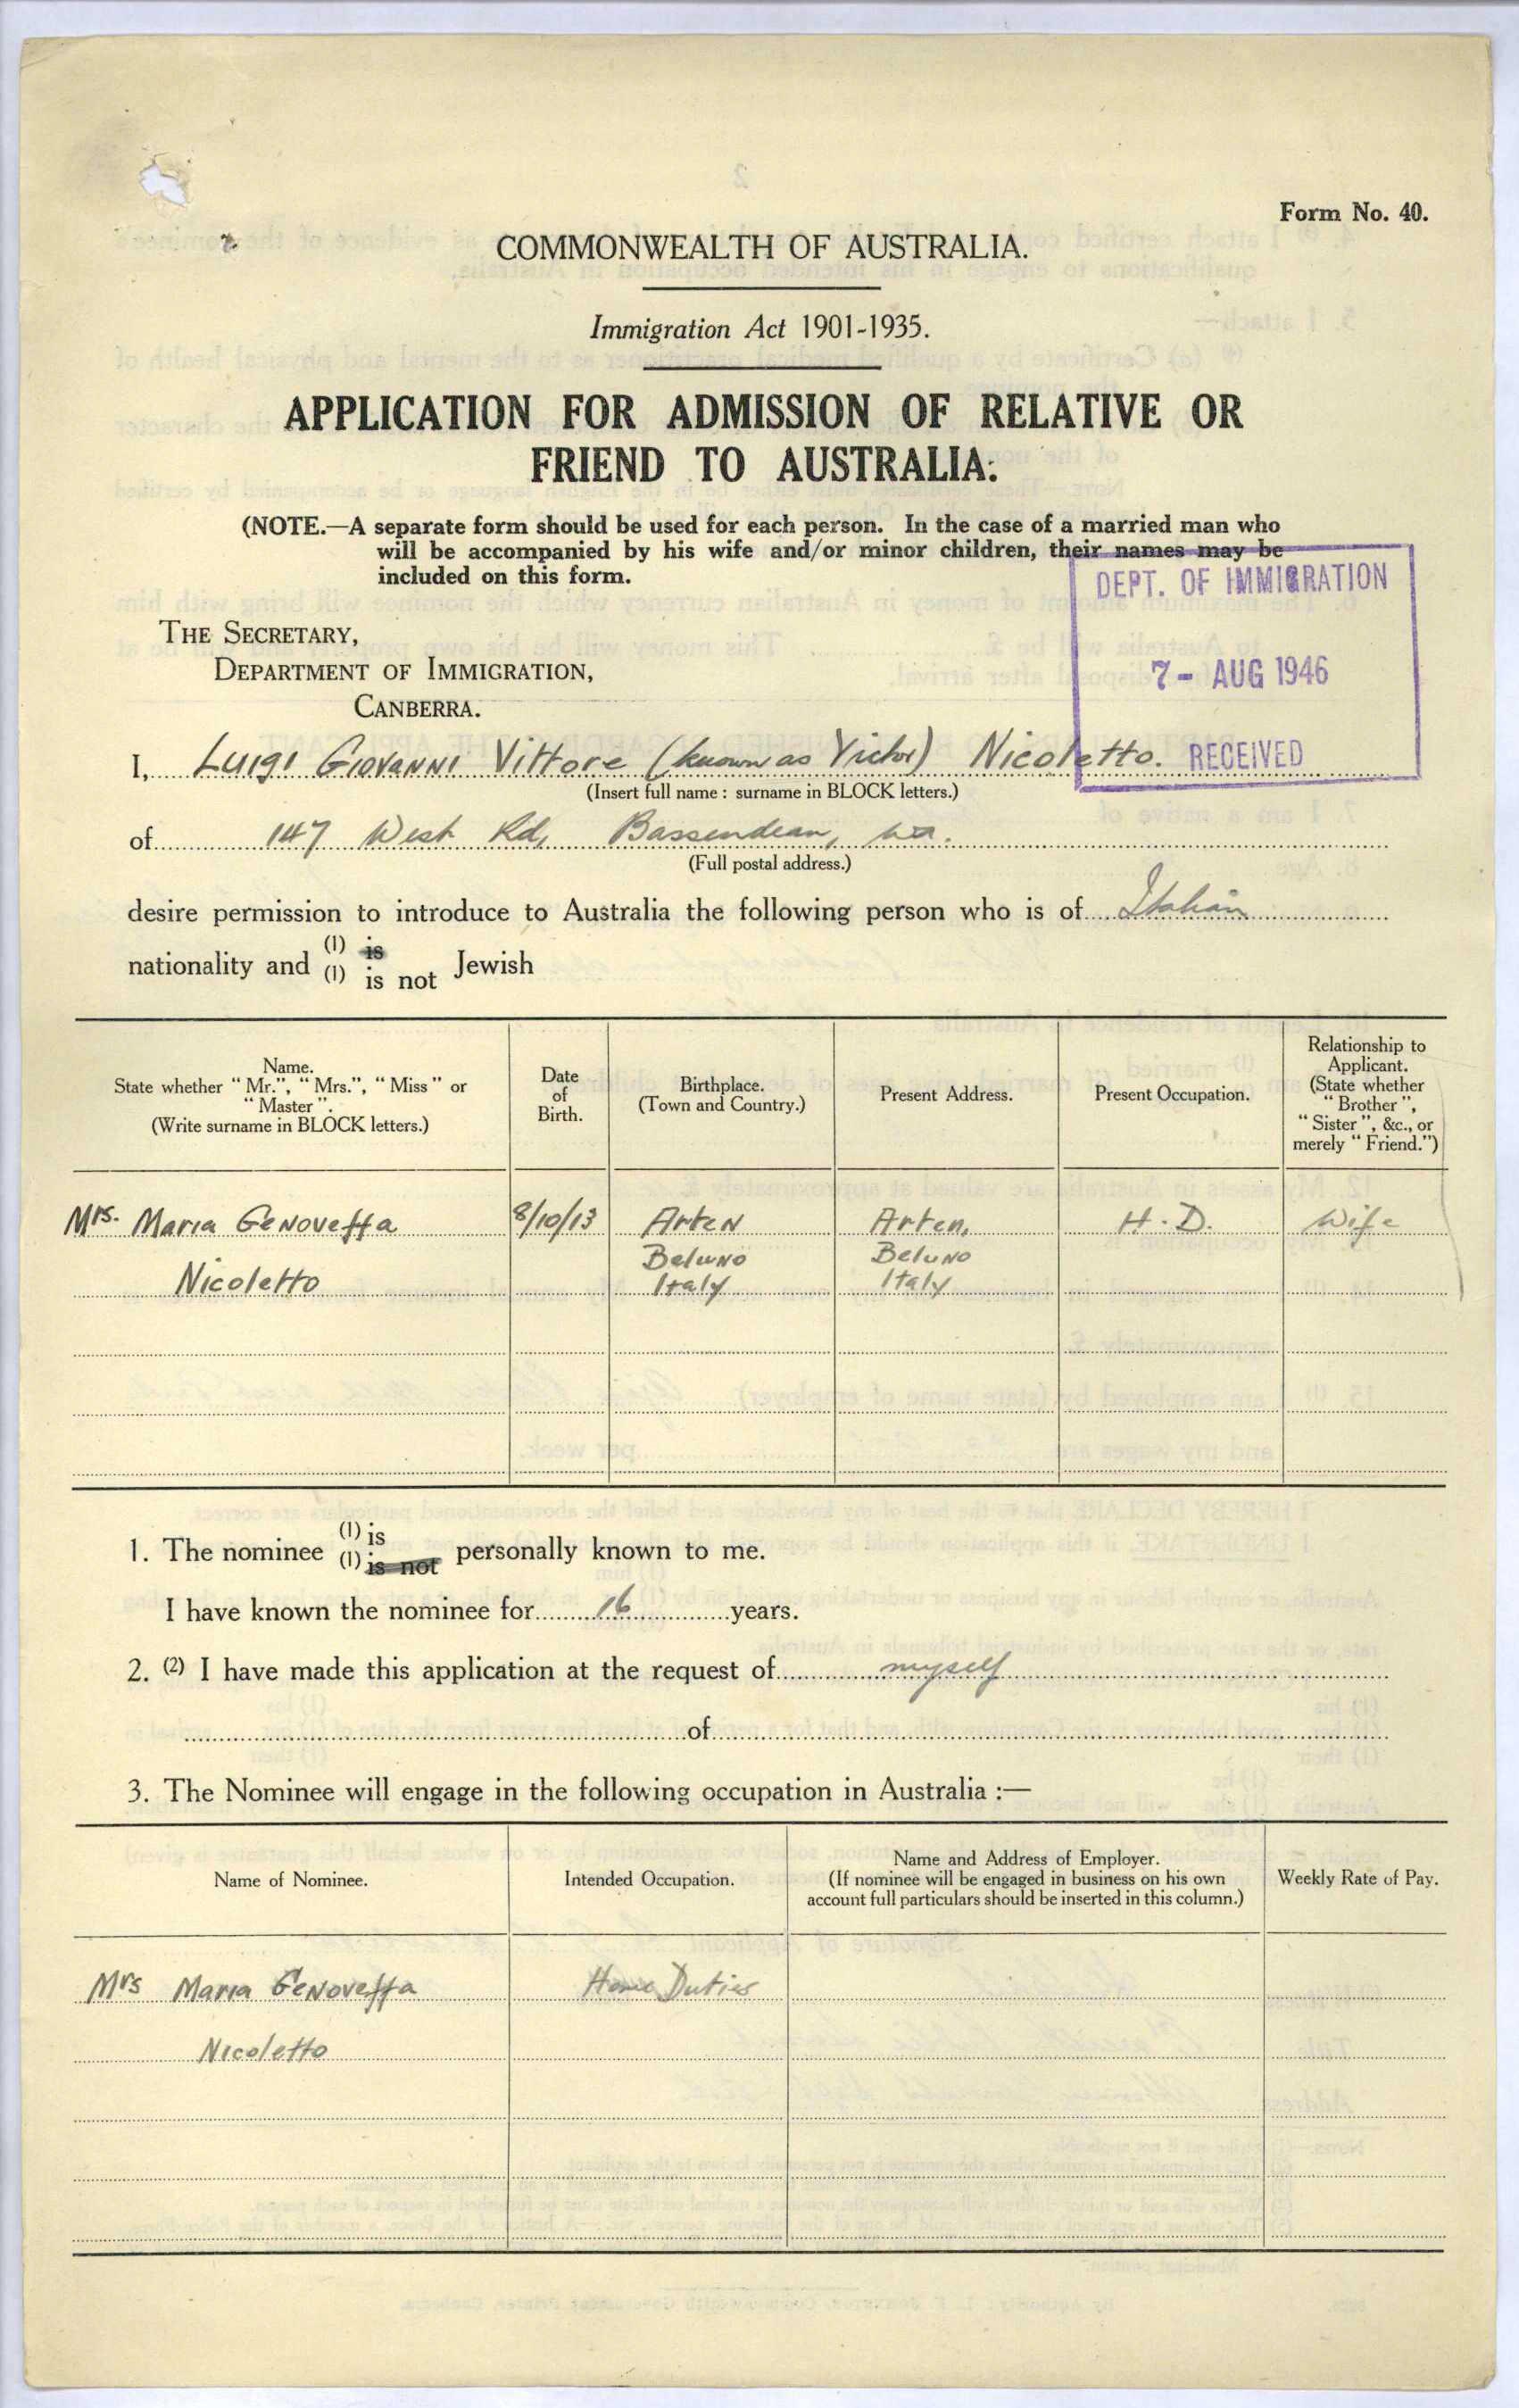 Form No. 40.
COMMONWEALTH OF AUSTRALIA.
Immigration Act 1901-1935.
APPLICATION FOR ADMISSION OF RELATIVE OR
FRIEND TO AUSTRALIA.
(NOTE.—A separate form should be used for each person. In the case of a married man who
will be accompanied by his wife and/or minor children, their names may be
included on this form.
DEPT. OF IMMIGRATION
7 - AUG 1946
RECEIVED
THE SECRETARY,
DEPARTMENT OF IMMIGRATION,
CANBERRA.
I, Luigi Giovanni Vittore (known as Victor) Nicoletto.
(Insert full name : surname in BLOCK letters.)
of 147 West Rd, Bassendean, W.A.
(Full postal address.)
desire permission to introduce to Australia the following person who is of Italian
nationality and (1) is
(1) is not Jewish
Name.
State whether "Mr.", "Mrs.", "Miss" or
"Master".
(Write surname in BLOCK letters.)
Date
of
Birth.
Birthplace.
(Town and Country.)
Present Address.
Present Occupation.
Relationship to
Applicant.
(State whether
"Brother",
"Sister", &c., or
merely "Friend.")
Mrs. Maria Genoveffa
Nicoletto
8/10/13
Arten
Beluno
Italy
Arten,
Beluno
Italy
H.D.
Wife
1. The nominee (1) is
(1) is not personally known to me.
I have known the nominee for 16 years.
2. (2) I have made this application at the request of myself
of
3. The Nominee will engage in the following occupation in Australia :—
Name of Nominee.
Intended Occupation.
Name and Address of Employer.
(If nominee will be engaged in business on his own
account full particulars should be inserted in this column.)
Weekly Rate of Pay.
Mrs Maria Genoveffa
Nicoletto
Home Duties